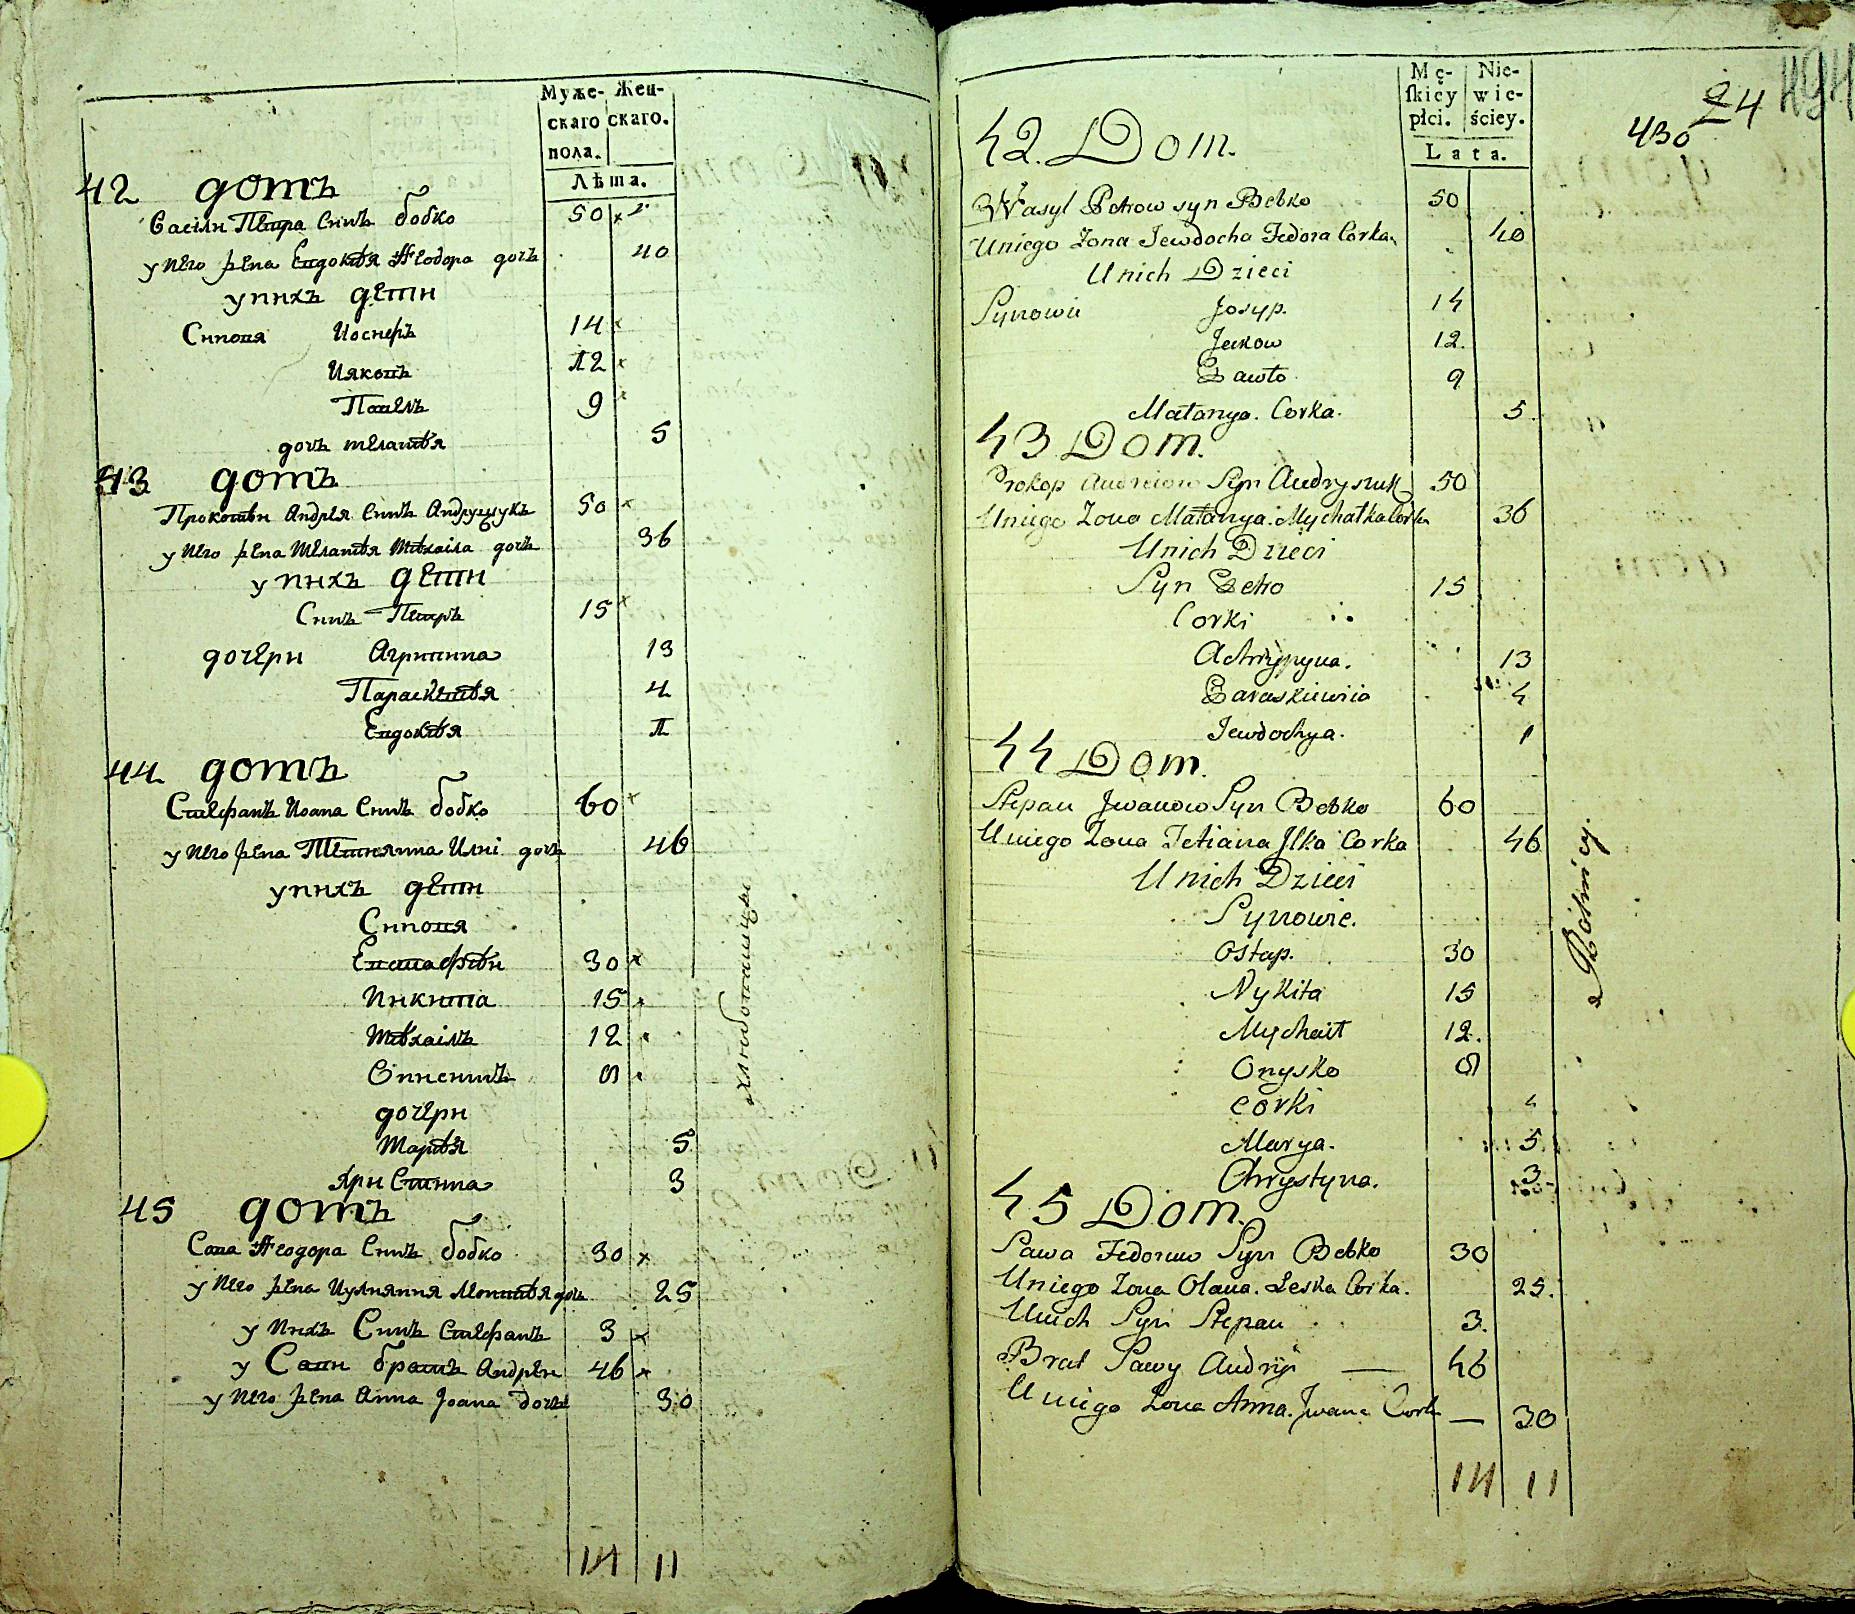 Муже-
скаго
пола.
Жен-
скаго.
Лѣта.
42 домъ
Василь Петра Синъ бобко 50
у него жена Евдокѣя Ѳеодора дочъ 40
у нихъ дети
Синовя Иосиеръ 14
Ияковъ 12
Павелъ 9
дочъ мелавѣя 5
43 домъ
Прокопѣи Андрея Синъ Андрущукъ 50
у него жена Мелавѣя Мѣхаіла дочъ 36
у нихъ дети
Синъ Петръ 15
дочери Агрипина 13
Параскевѣя 4
Евдокѣя 1
44 домъ
Стефанъ Иоана Синъ бобко 60
у него жена Тетияна Илиі дочъ 46
у нихъ дети
Синовя
Евстафѣи 30
Никита 15
Мѣхаілъ 12
Онисимъ 8
дочери
Марѣя 5
Христина 3
45 домъ
Сава Ѳеодора Синъ бобко 30
у него жена Иулияния дочъ 25
у нихъ Синъ Стефанъ 3
у Сави братъ Андреи 46
у него жена Анна Иоана дочъ 30
14 11
хлиботницы
Mę-
skiey
płci.
Nie-
wie-
ściey.
Lata.
24
430
494
42. Dom.
Wasyl Petrow syn Bebko 50
U niego Zona Jewdocha Fedora Corka. 40
U nich Dzieci
Synowie Josyp. 14
Jackow 12.
Pawło 9
Małanya. Corka. 5
43 Dom.
Prokop Andreiow Syn Andryszuk 50
U niego Zona Małanya. Mychałka Corka 36
U nich Dzieci
Syn Petro 15
Corki
Achrypyna. 13
Paraskiewiia 4
Jewdochya. 1
44 Dom.
Stepan Jwanow Syn Bebko 60
U niego Zona Tetiana Jlka Corka 46
U nich Dzieci
Synowie.
Ostap. 30
Nykita 15
Mychaił 12.
Onysko 8
Corki
Marya. 5
Chrystyna. 3
45 Dom.
Sawa Fedorow Syn Bebko 30
U niego Zona Olana. Leska Corka. 25.
U nich Syn Stepan 3.
Brat Sawy Andrij — 46
U niego Zona Anna. Jwana Corka — 30
14 11
Rolnicy.